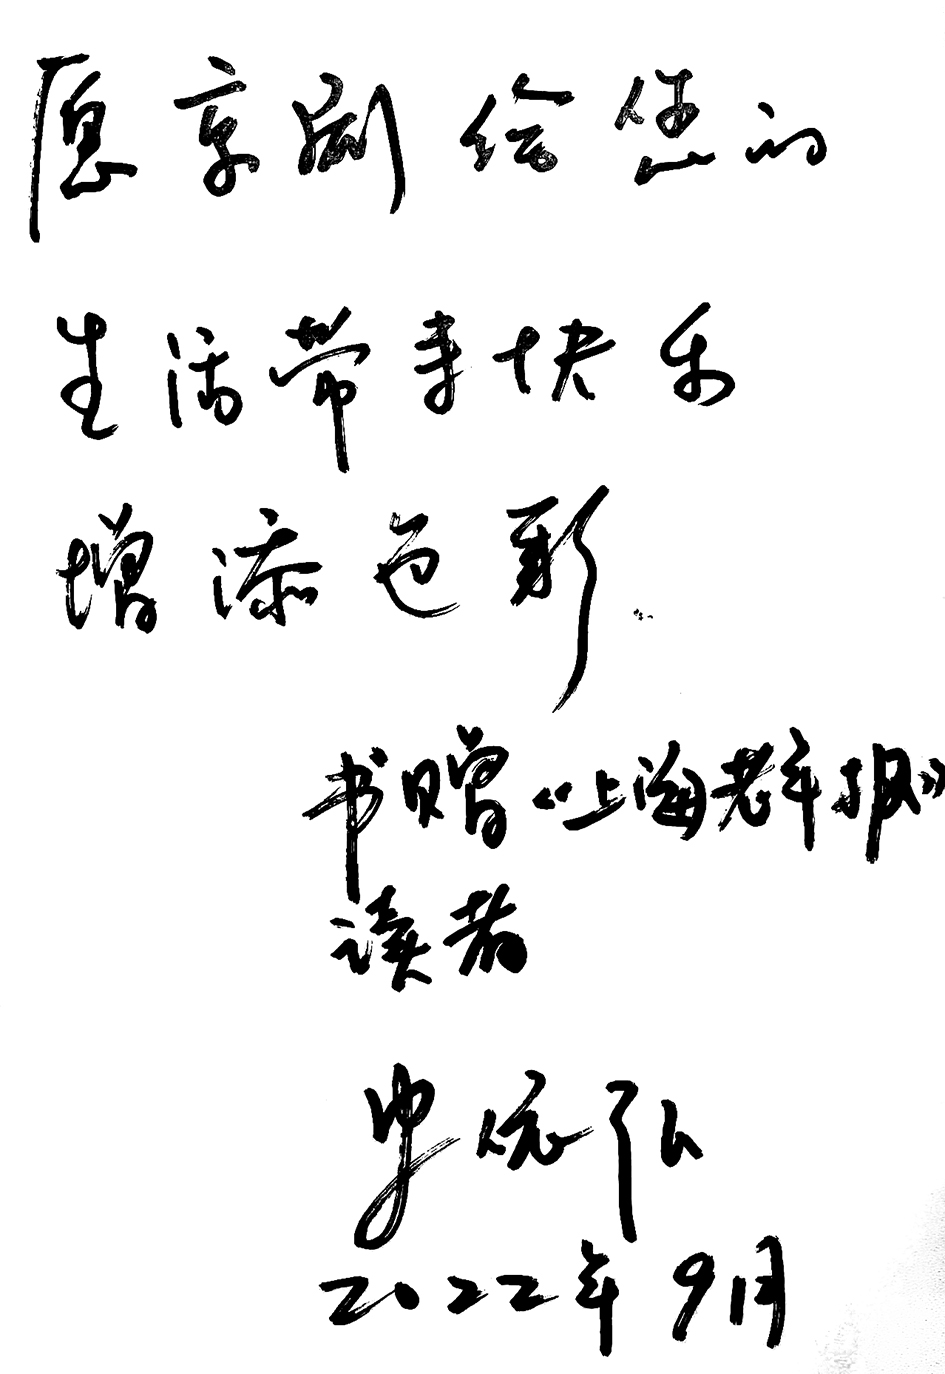 愿京剧给您的
生活带来快乐
增添色彩.
书赠《上海老年报》
读者
史依弘
2022年9月